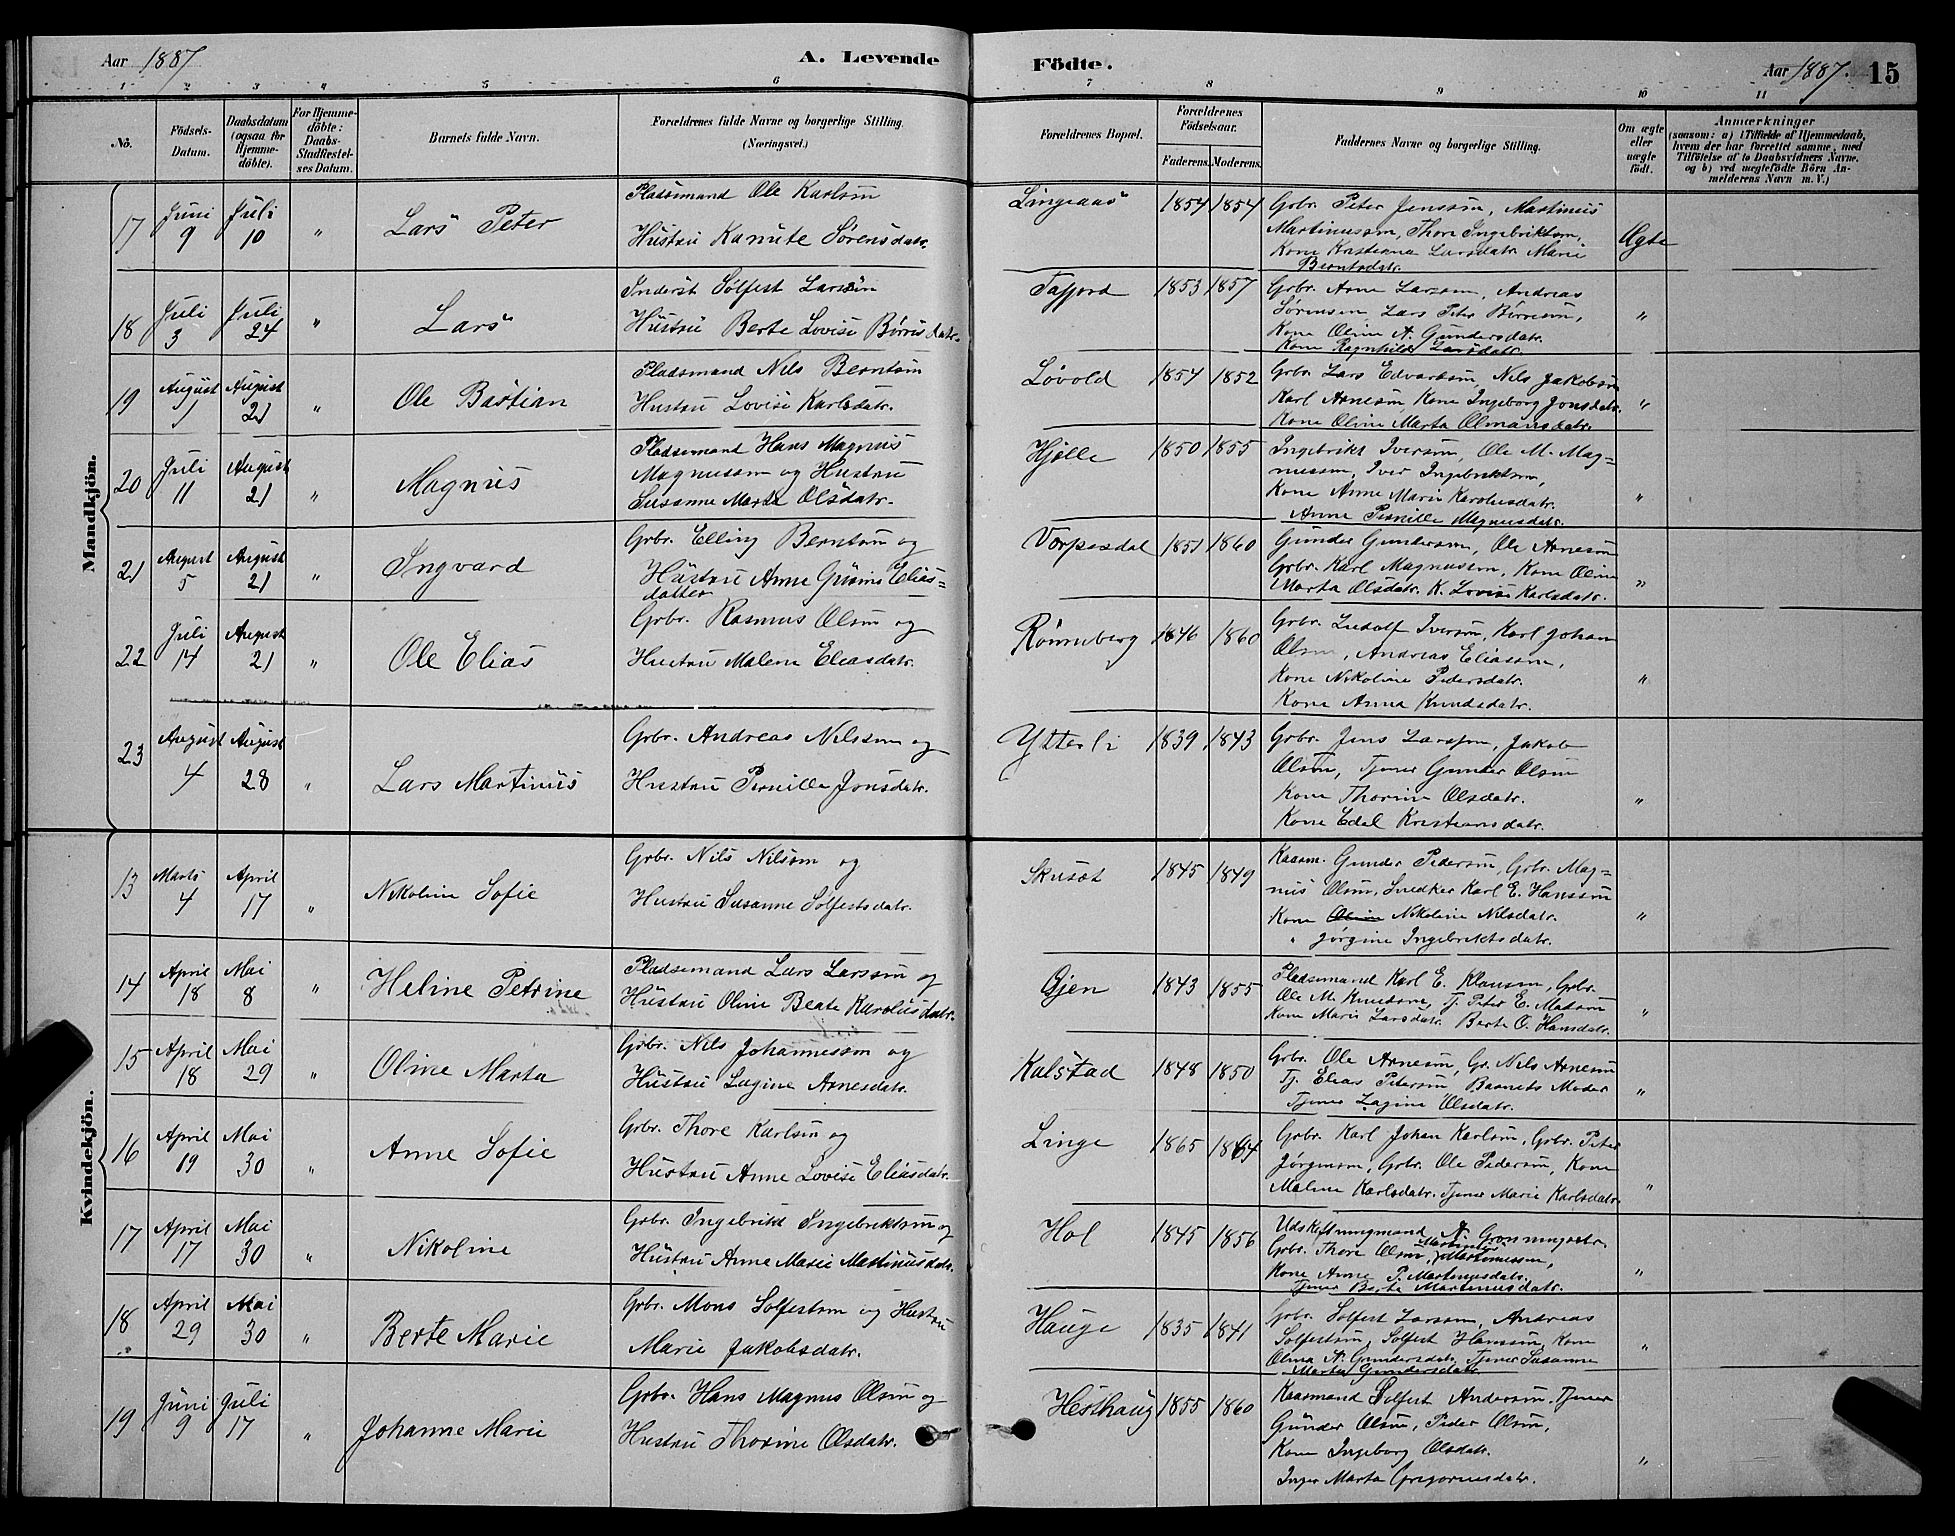 Aar 1887 A. Levende Födte. Aar 1887. 15
1 2 3 4 5 6 7 8 9 10 11
No. Födsels-Datum. Daabsdatum (ogsaa for Hjemme-döbte). For Hjemme-döbte: Daabs-Stadfæstel-ses Datum. Barnets fulde Navn. Forældrenes fulde Navne og borgerlige Stilling. (Næringsvei.) Forældrenes Bopæl. Forældrenes Födselsaar. Faderens. Moderens. Faddernes Navne og borgerlige Stilling. Om ægte eller uægte födt. Anmærkninger
(saasom: a) i Tilfælde af Hjemmedaab, hvem der har forrettet samme, med Tilföielse af to Daabsvidners Navne, og b) ved uægtefödte Börn An-melderens Navn m. V.)
Mandkjön.
17 Juni 9 Juli 10 " Lars Peter
Pladsemand Ole Karlsen
Hustru Kanute Sørensdatr.
Lingeaas 1854 1854
Grbr. Peter Jensson, Martinus
Martinussøn, Thore Ingebriktsøn,
Kone Kristiana Larsdatr. Marie
Berntsdatr.
Ægte
18 Juli 3 Juli 24 " Lars
Inderst Sølfest Larsøn
Hustru Berte Lovise Børresdatr.
Tafjord 1853 1857
Grbr. Arne Larsøn, Andreas
Sørensen, Lars Peter Børresøn,
Kone Oline A. Gundersdatr.
Kone Ragnhild Larsdatr.
"
19 August 1 August 21 " Ole Bastian
Pladsmand Nils Berntsøn
Hustru Lovise Karlsdatr.
Løvold 1854 1852
Grbr. Lars Edvartsøn, Nils Jakobsøn
Karl Arnesøn Kone Ingeborg Jonsdatr.
Kone Oline Marta Olmansdatr.
"
20 Juli 11 August 21 " Magnus
Pladsemand Hans Magnus
Magnussøn og Hustru
Susanne Marta Olsdatr.
Hjelle 1850 1855
Ingebrikt Iversøn, Ole M. Mag=
nussøn, Iver Ingebriktsøn,
Kone Anne Marie Karolusdatr.
Anne Pernille Magnusdatr.
"
21 August 5 August 21 " Ingvard
Grbr. Elling Berntsøn og
Hustru Anne Gurine Elias=
datter
Vorpesdal 1851 1860
Gunder Gundersøn, Ole Arnesøn
Grbr. Karl Magnussøn, Kone Oline
Marta Olsdatr. K. Lovise Karlsdatr.
"
22 Juli 14 August 21 " Ole Elias
Grbr. Rasmus Olsøn og
Hustru Malene Eliasdatr.
Rønneberg 1846 1860
Grbr. Ludolf Iversøn, Karl Johan
Olsøn, Andreas Eliassøn,
Kone Nikoline Pedersdatr.
Kone Anna Knudsdatr.
"
23 August 4 August 28 " Lars Martinus
Grbr. Andreas Nilssøn og
Hustru Pernille Jonsdatr.
Ytterli 1839 1843
Grbr. Jens Larssøn, Jakob
Olsøn, Tjener Gunder Olsøn
Kone Thorine Olsdatr.
Kone Edel Kristiansdatr.
"
Kvindekjön.
13 Marts 4 April 17 " Nikoline Sofie
Grbr. Nils Nilsøn og
Hustru Susanne Solfestsdatr.
Skusæt 1845 1849
Kaarm. Gunder Pedersøn, Grbr. Mag=
nus Olsøn, Snedker Karl E. Hanssøn
Kone Nikoline Nilsdatr.
" Jørgine Ingebriktsdatr.
"
14 April 18 Mai 8 " Heline Petrine
Pladsemand Lars Larssøn og
Hustru Oline Beate Karolusdatr.
Øjen 1843 1855
Pladsemand Karl E. Klausøn, Grbr.
Ole M. Knudsøn, Tj. Peter E. Madsøn
Kone Marie Larsdatr. Berte O. Hansdatr.
"
15 April 18 Mai 29 " Oline Marta
Grbr. Nils Johannessøn og
Hustru Lagine Arnesdatr.
Kalstad 1848 1850
Grbr. Ole Arnesøn, Gr. Nils Arnesøn
Tj. Elias Petersøn Barnets Moder
Tjener Lagine Olsdatr.
"
16 April 19 Mai 30 " Anne Sofie
Grbr. Thore Karlsøn og
Hustru Anne Lovise Eliasdatr.
Linge 1865 1864
Grbr. Karl Johan Karlsøn, Grbr. Peter
Jørgensøn, Grbr. Ole Pedersøn, Kone
Malene Karlsdatr. Tjener Marie Karlsdatr.
"
17 April 17 Mai 30 " Nikoline
Grbr. Ingebrikt Ingebriktsøn og
Hustru Anne Marie Martinusdatr.
Hol 1845 1856
Udskiftningsmand N. Grønningsæter
Grbr. Thore Olsøn, Martinus Martinussøn,
Kone Anne P. Martinusdatr.
Tjener Berte Martinusdatr.
"
18 April 29 Mai 30 " Berte Marie
Grbr. Mons Solfestsøn og Hustru
Marie Jakobsdatr.
Hauge 1835 1841
Grbr. Solfest Larssøn, Andreas
Solfestsøn, Solfest Hansøn, Kone
Olina N. Gundersdatr, Tjener Susanne
Marta Gundersdatr.
"
19 Juni 9 Juli 17 " Johanne Marie
Grbr. Hans Magnus Olsøn og
Hustru Thorine Olsdatr.
Hesthaug 1855 1860
Kaarmand Solfest Andersøn, Tjener
Gunder Olsøn, Peder Olsøn,
Kone Ingeborg Olsdatr.
Inger Marta Gregoriusdatr.
"